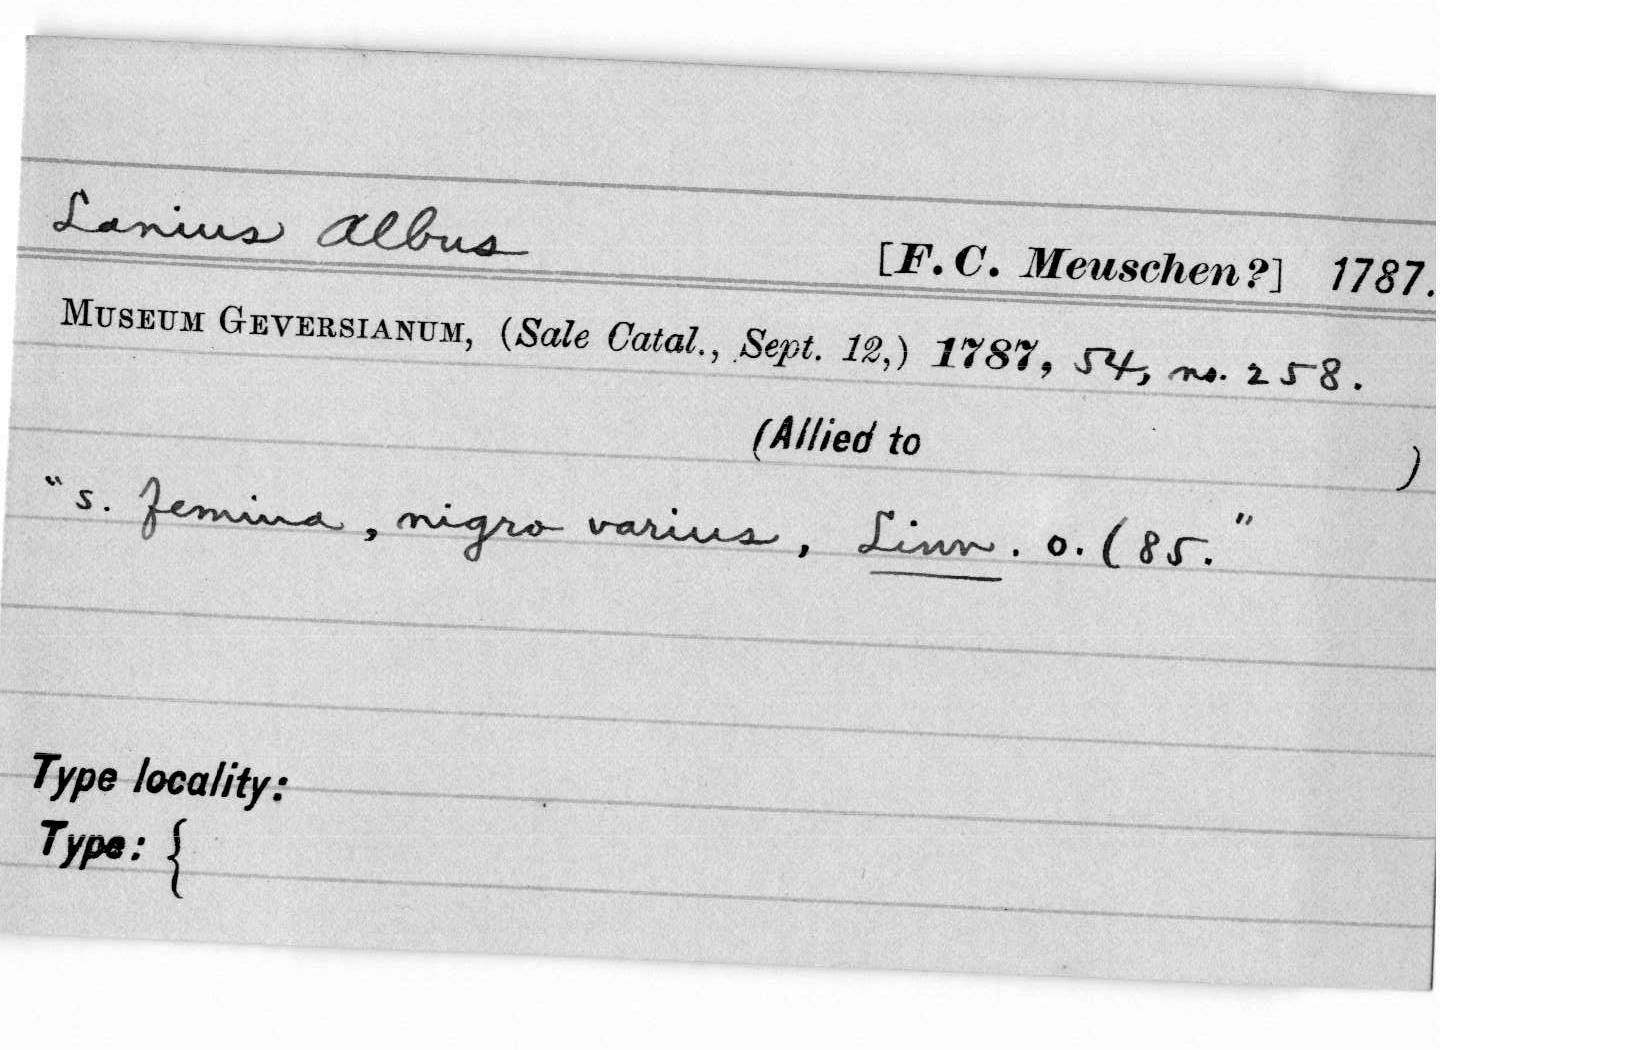 Lanius albus
[F. C. Meuschen?] 1787.
MUSEUM GEVERSIANUM, (Sale Catal., Sept. 12,) 1787, 54, no. 258.
(Allied to )
"s. femina, nigro varius, Linn. o. (85."
Type locality:
Type: {